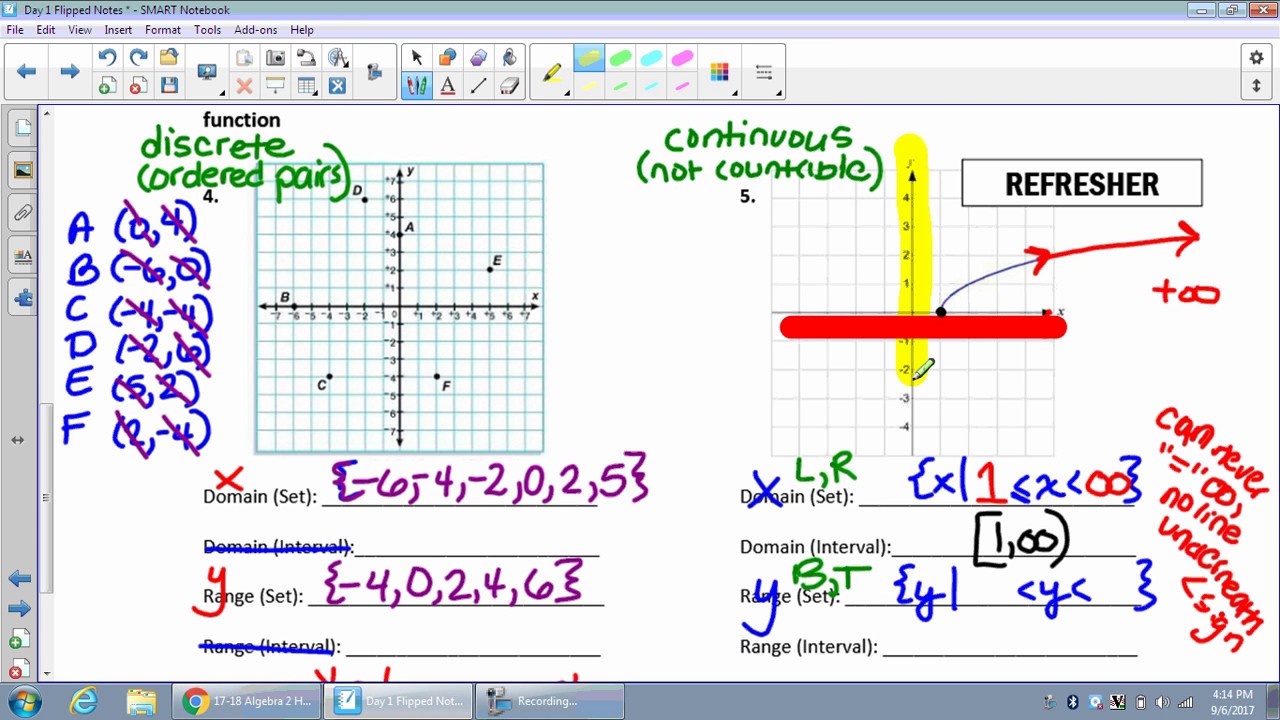 Day 1 Flipped Notes * - SMART Notebook
File Edit View Insert Format Tools Add-ons Help
function
discrete
(ordered pairs)
4.
A (0,4)
B (-6,0)
C (-4,-4)
D (-2,6)
E (5,2)
F (2,-4)
y
+7
D
+6
+5
+4 A
+3
E
+2
+1
B x
-7 -6 -5 -4 -3 -2 -1 0 +1 +2 +3 +4 +5 +6 +7
-1
-2
-3
C -4 F
-5
-6
-7
x
Domain (Set): {-6,-4,-2,0,2,5}
Domain (Interval):
y
Range (Set): {-4,0,2,4,6}
Range (Interval):
continuous
(not countable)
5.
REFRESHER
y
4
3
2
1
x
-1
-2
-3
-4
+∞
L,R
x
Domain (Set): {x| 1 ≤ x < ∞}
Domain (Interval): [1,∞)
B,T
y
Range (Set): {y| < y < }
Range (Interval):
can never
"=" ∞,
no line
underneath
< sign
17-18 Algebra 2 H...
Day 1 Flipped Not...
Recording...
4:14 PM
9/6/2017